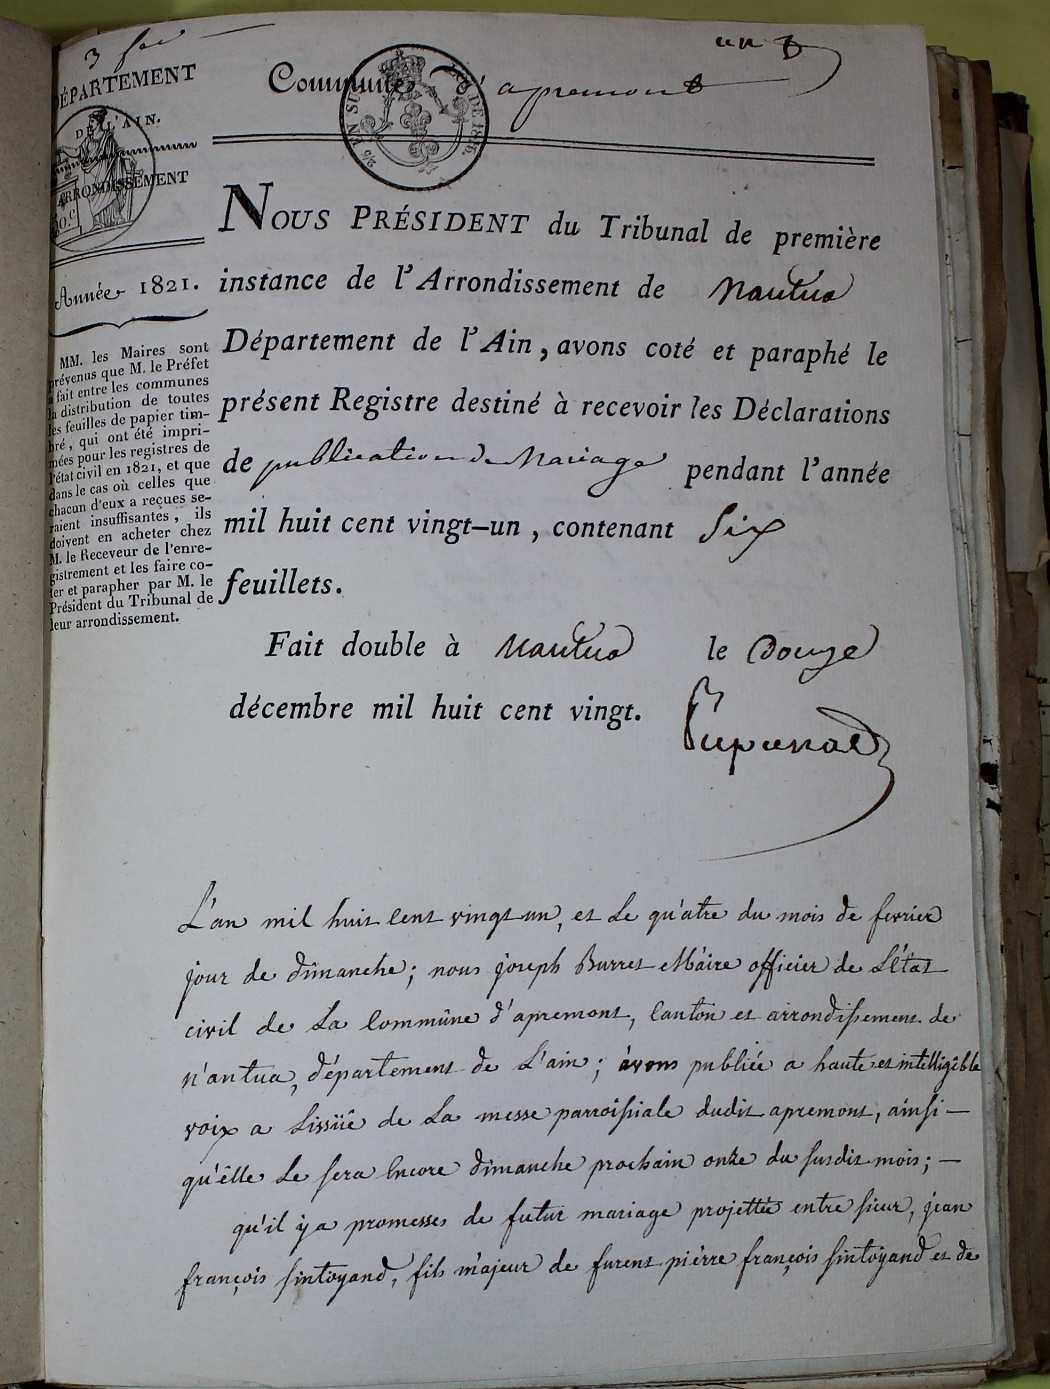 3 feu
un
DÉPARTEMENT
DE L'AIN.
ARRONDISSEMENT
Commune D'apremont
EN SUS
DE 1816.
Année 1821.
MM. les Maires sont
prévenus que M. le Préfet
a fait entre les communes
la distribution de toutes
les feuilles de papier tim-
bré, qui ont été impri-
mées pour les registres de
l'état civil en 1821, et que
dans le cas où celles que
chacun d'eux a reçues se-
raient insuffisantes, ils
doivent en acheter chez
M. le Receveur de l'enre-
gistrement et les faire co-
ter et parapher par M. le
Président du Tribunal de
leur arrondissement.
NOUS PRÉSIDENT du Tribunal de première
instance de l'Arrondissement de Nantua
Département de l'Ain, avons coté et paraphé le
présent Registre destiné à recevoir les Déclarations
de publication de Mariage pendant l'année
mil huit cent vingt-un, contenant Six
feuillets.
Fait double à Nantua le Douze
décembre mil huit cent vingt.
L'an mil huit cent vingt un, et le qu'atre du mois de fevrier
jour de dimanche; nous joseph Burret Maire officier de L'état
civil de La Commûne d'apremont, Canton et arrondissement de
n'antua, département de L'ain; àvons publiée a haute et intelligible
voix a Lissüe de La messe parroissiale dudit apremont, ainsi-
qu'êlle Le sera Encore dimanche prochain onze du susdit mois; -
qu'il ÿ a promesses de futur mariage projettée entre sieur, jean
françois sintoyand, fils majeur de furent pièrre françois sintoyand et de